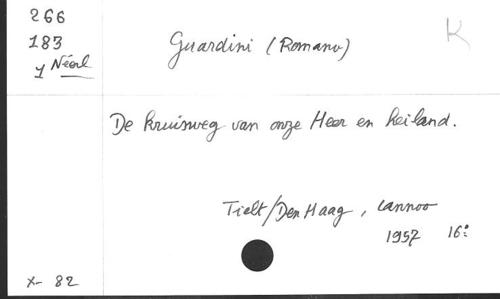 266
183
1 Néerl
Guardini (Romano)
K
De kruisweg van onze Heer en heiland.
Tielt/Den Haag, Lannoo
1957 16°
X- 82